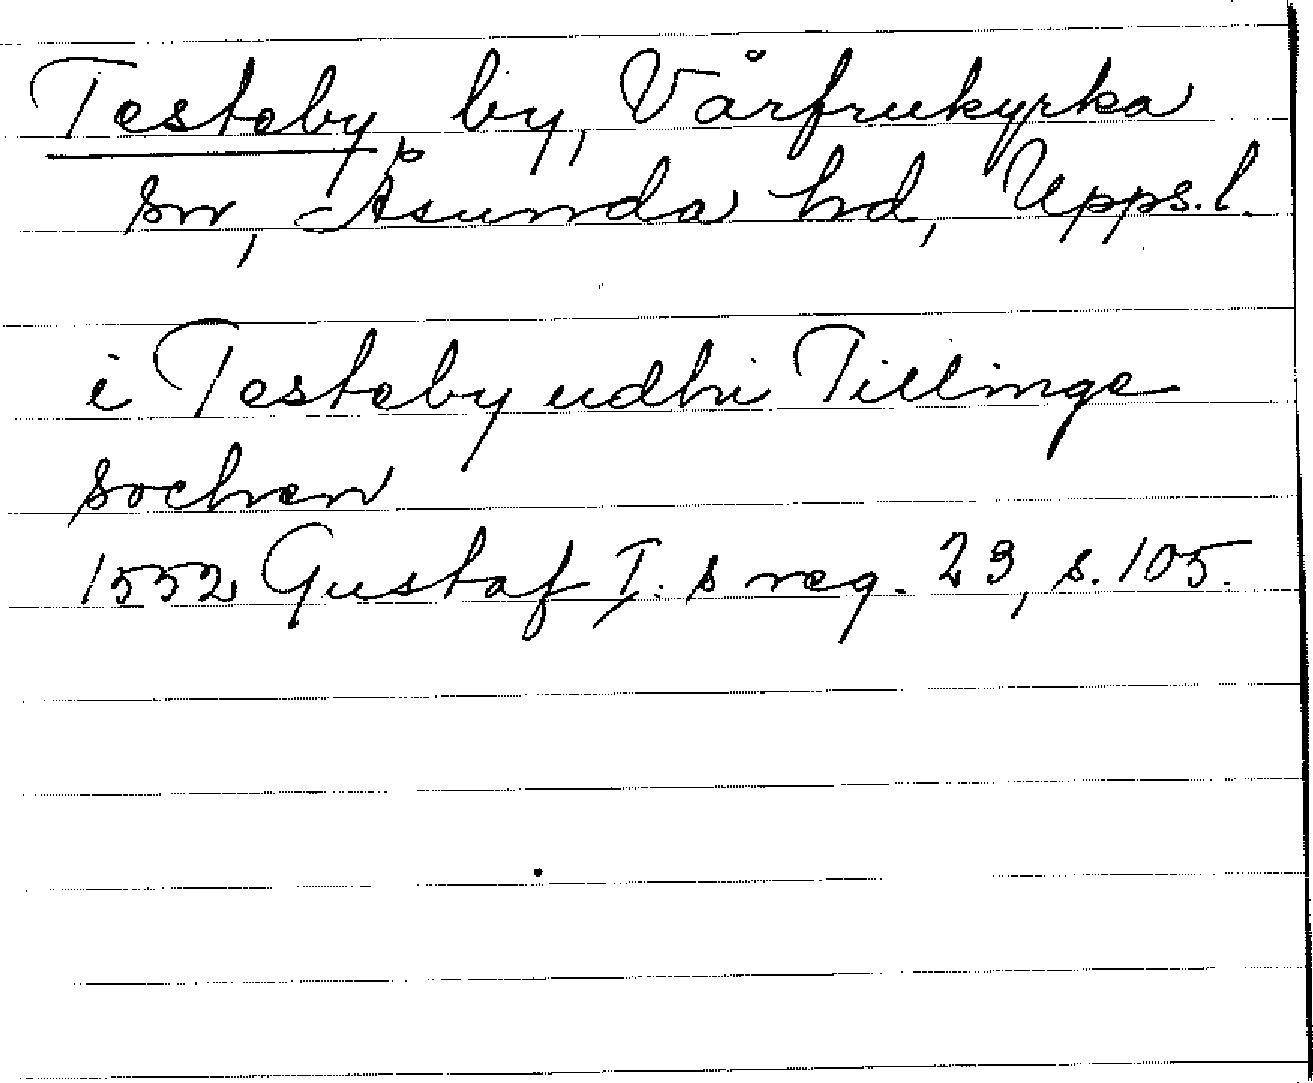 Testeby, by, Vårfrukyrka
sn, Åsunda hd, Upps.l.
i Testeby udhi Tillinge
sochen
1552 Gustaf I:s reg. 23, s. 105.